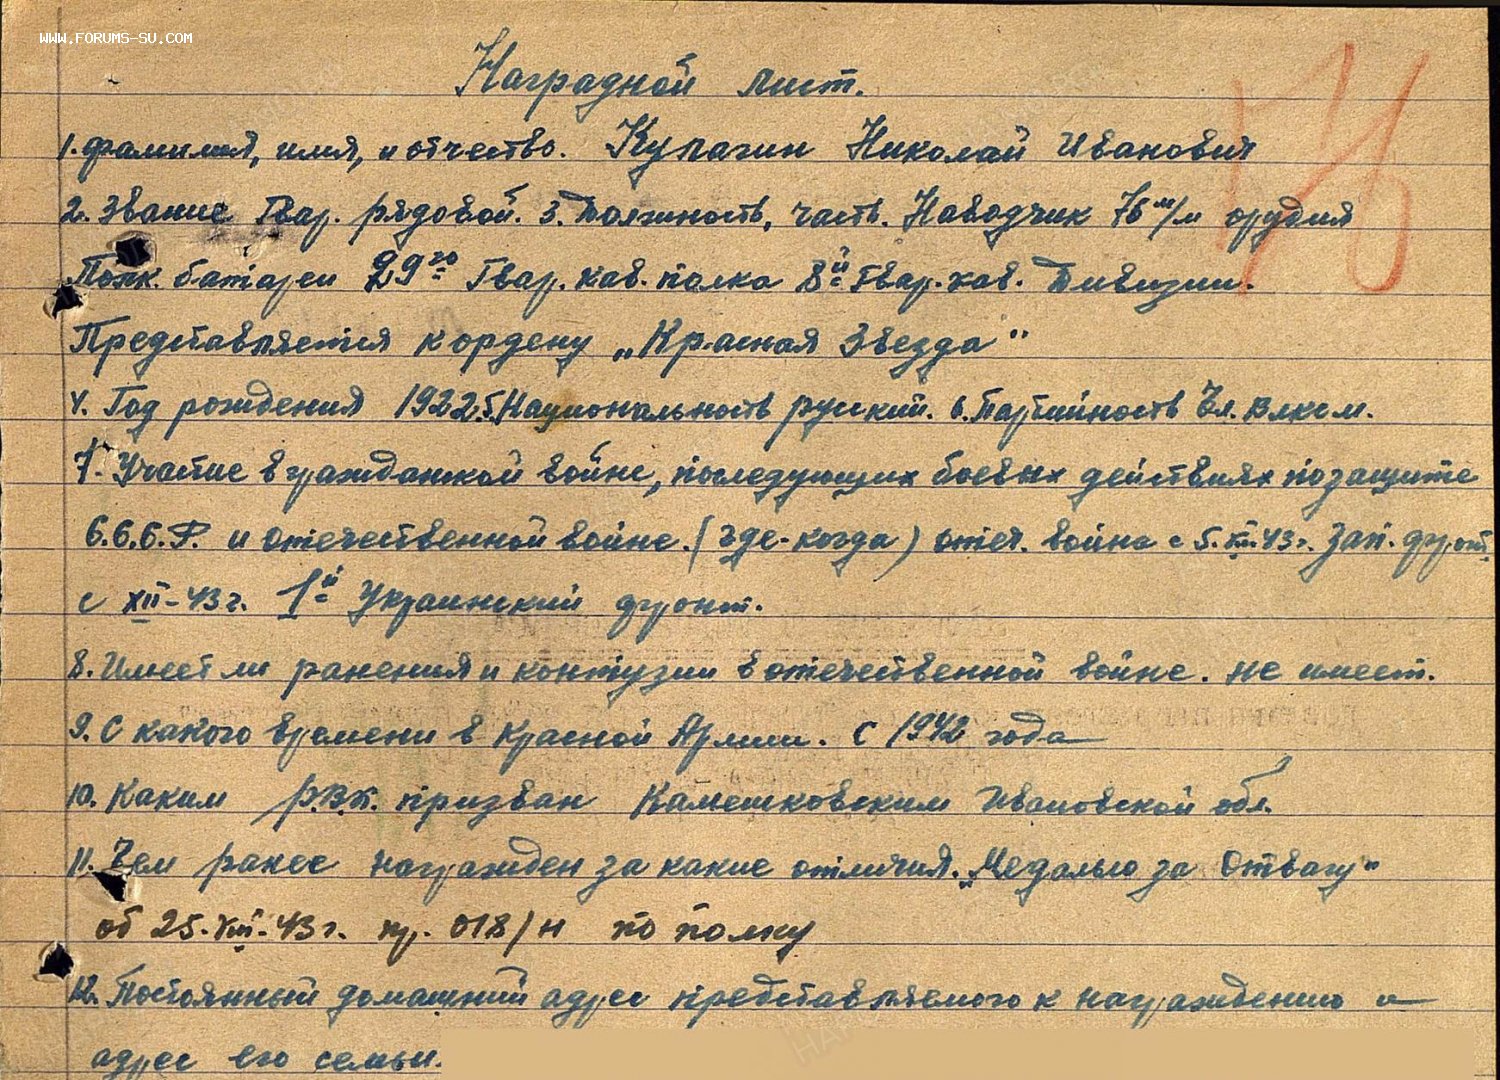 WWW.FORUMS-SU.COM
Наградной лист.
1. фамилия, имя, и отчество. Кулагин Николай Иванович
2. Звание Гвар. рядовой. 3. Должность, часть. Наводчик 76 м/м орудия
Полк. батареи 29го Гвар. кав. полка 8й Гвар. кав. Дивизии.
Представляется к ордену „Красная Звезда"
4. Год рождения 1922 5. Национальность русский. 6. Партийность Чл. влксм.
7. Участие в гражданской войне, последующих боевых действиях по защите
С.С.С.Р. и отечественной войне. (где-когда) отеч. война с 5.VIII.43г. Зап. фронт.
с XII-43г. 1й Украинский фронт.
8. Имеет ли ранения и контузии в отечественной войне. не имеет.
9. С какого времени в Красной Армии. С 1942 года
10. Каким Р.В.К. призван Камешковским Ивановской обл.
11. Чем ранее награжден за какие отличия. „Медалью за Отвагу"
об 25.VIII.43г. пр. 018/н по полку
12. Постоянный домашний адрес представляемого к награждению и
адрес его семьи.